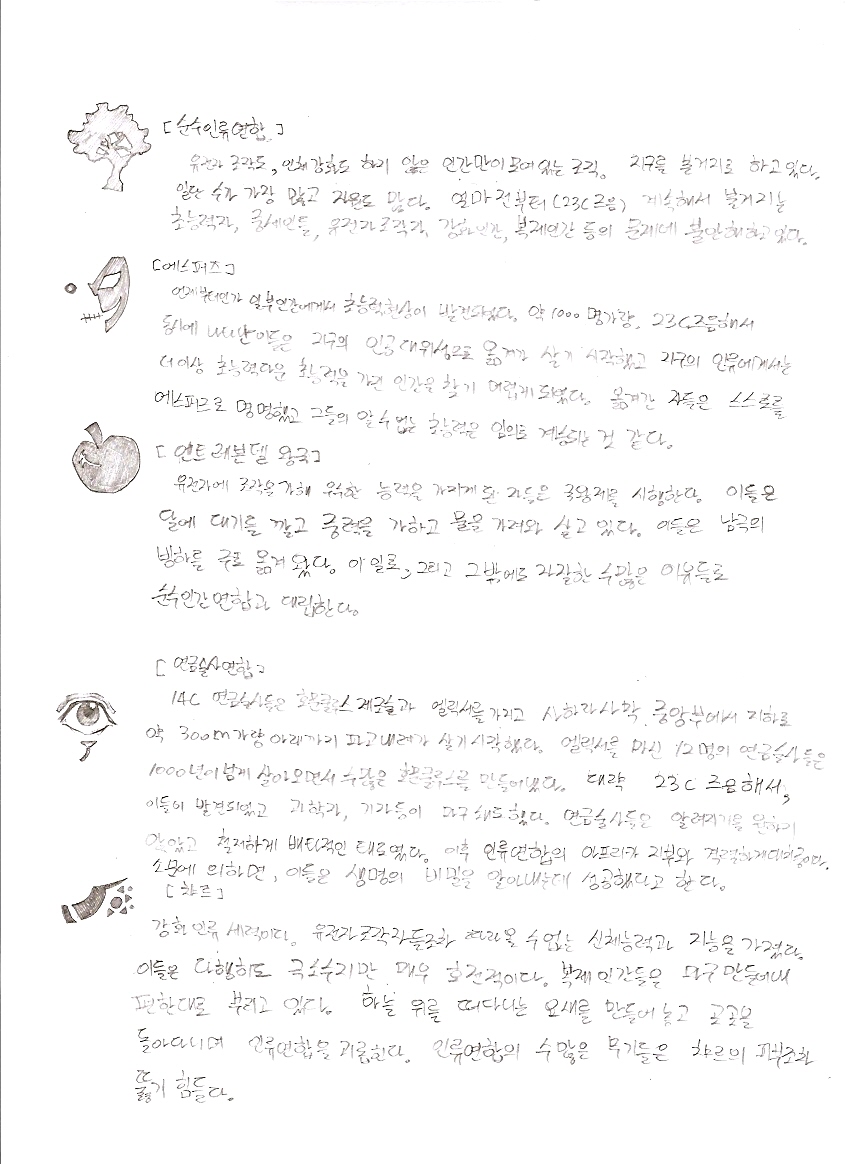 [순수인류연합]
유전자 조작도, 인체강화도 하지 않은 인간만이 모여있는 조직. 지구를 본거지로 하고있다.
일단 수가 가장 많고 자원도 많다. 얼마전부터(23C즈음) 계속해서 불거지는
초능력자, 유전자조작자, 강화인간, 복제인간 등의 문제에 불안해하고있다.
[에스퍼즈]
언제부터인가 일부인간에게서 초능력현상이 발견되었다. 약 1000명가량. 23C즈음해서
동시에 나타난이들은 지구의 인공대위성으로 옮겨가 살기 시작했고 지구의 인류에게서는
더이상 초능력다운 초능력을 가진 인간을 찾기 어렵게되었다. 옮겨간 자들은 스스로를
에스퍼즈로 명명했고 그들의 알수없는 초능력은 임의로 계승되는 것 같다.
[언트레븐델 왕국]
유전자에 조작을가해 우수한 능력을 가지게 된 자들은 국왕제를 시행한다. 이들은
달에 대기를 깔고 중력을 가하고 물을 가져와 살고 있다. 이들은 남극의
빙하를 주로 옮겨 왔다. 이 일로, 그리고 그밖에도 자잘한 수많은 이유들로
순수인간연합과 대립한다.
[연금술사연합]
14C 연금술사들은 호문클루스 제조술과 엘릭서를 가지고 사하라사막 중앙부에서 지하로
약 300m가량 아래까지 파고내려가 살기시작했다. 엘릭서를 마신 12명의 연금술사들은
1000년이 넘게 살아오면서 수많은 호문클루스를 만들어냈다. 대략 23C 즈음해서,
이들이 발견되었고 과학자, 기자등이 했다. 연금술사들은 알려지기를 원하지
않았고 철저하게 배타적인 태도였다. 이후 인류연합의 아프리카 지부와 격렬하게대치중이다.
소문에 의하면, 이들은 생명의 비밀을 알아내는데 성공했다고 한다.
[챠르]
강화인류 세력이다. 유전자조작자들조차 따라올 수없는 신체능력과 지능을 가졌다.
이들은 다행히도 극소수지만 매우 호전적이다. 복제인간들은 마구 만들어내
편한대로 부리고 있다. 하늘 위를 떠다니는 요새를 만들어 놓고 곳곳을
돌아다니며 인류연합을 괴롭힌다. 인류연합의 수많은 무기들은 챠르의 피부조차
뚫기 힘들다.